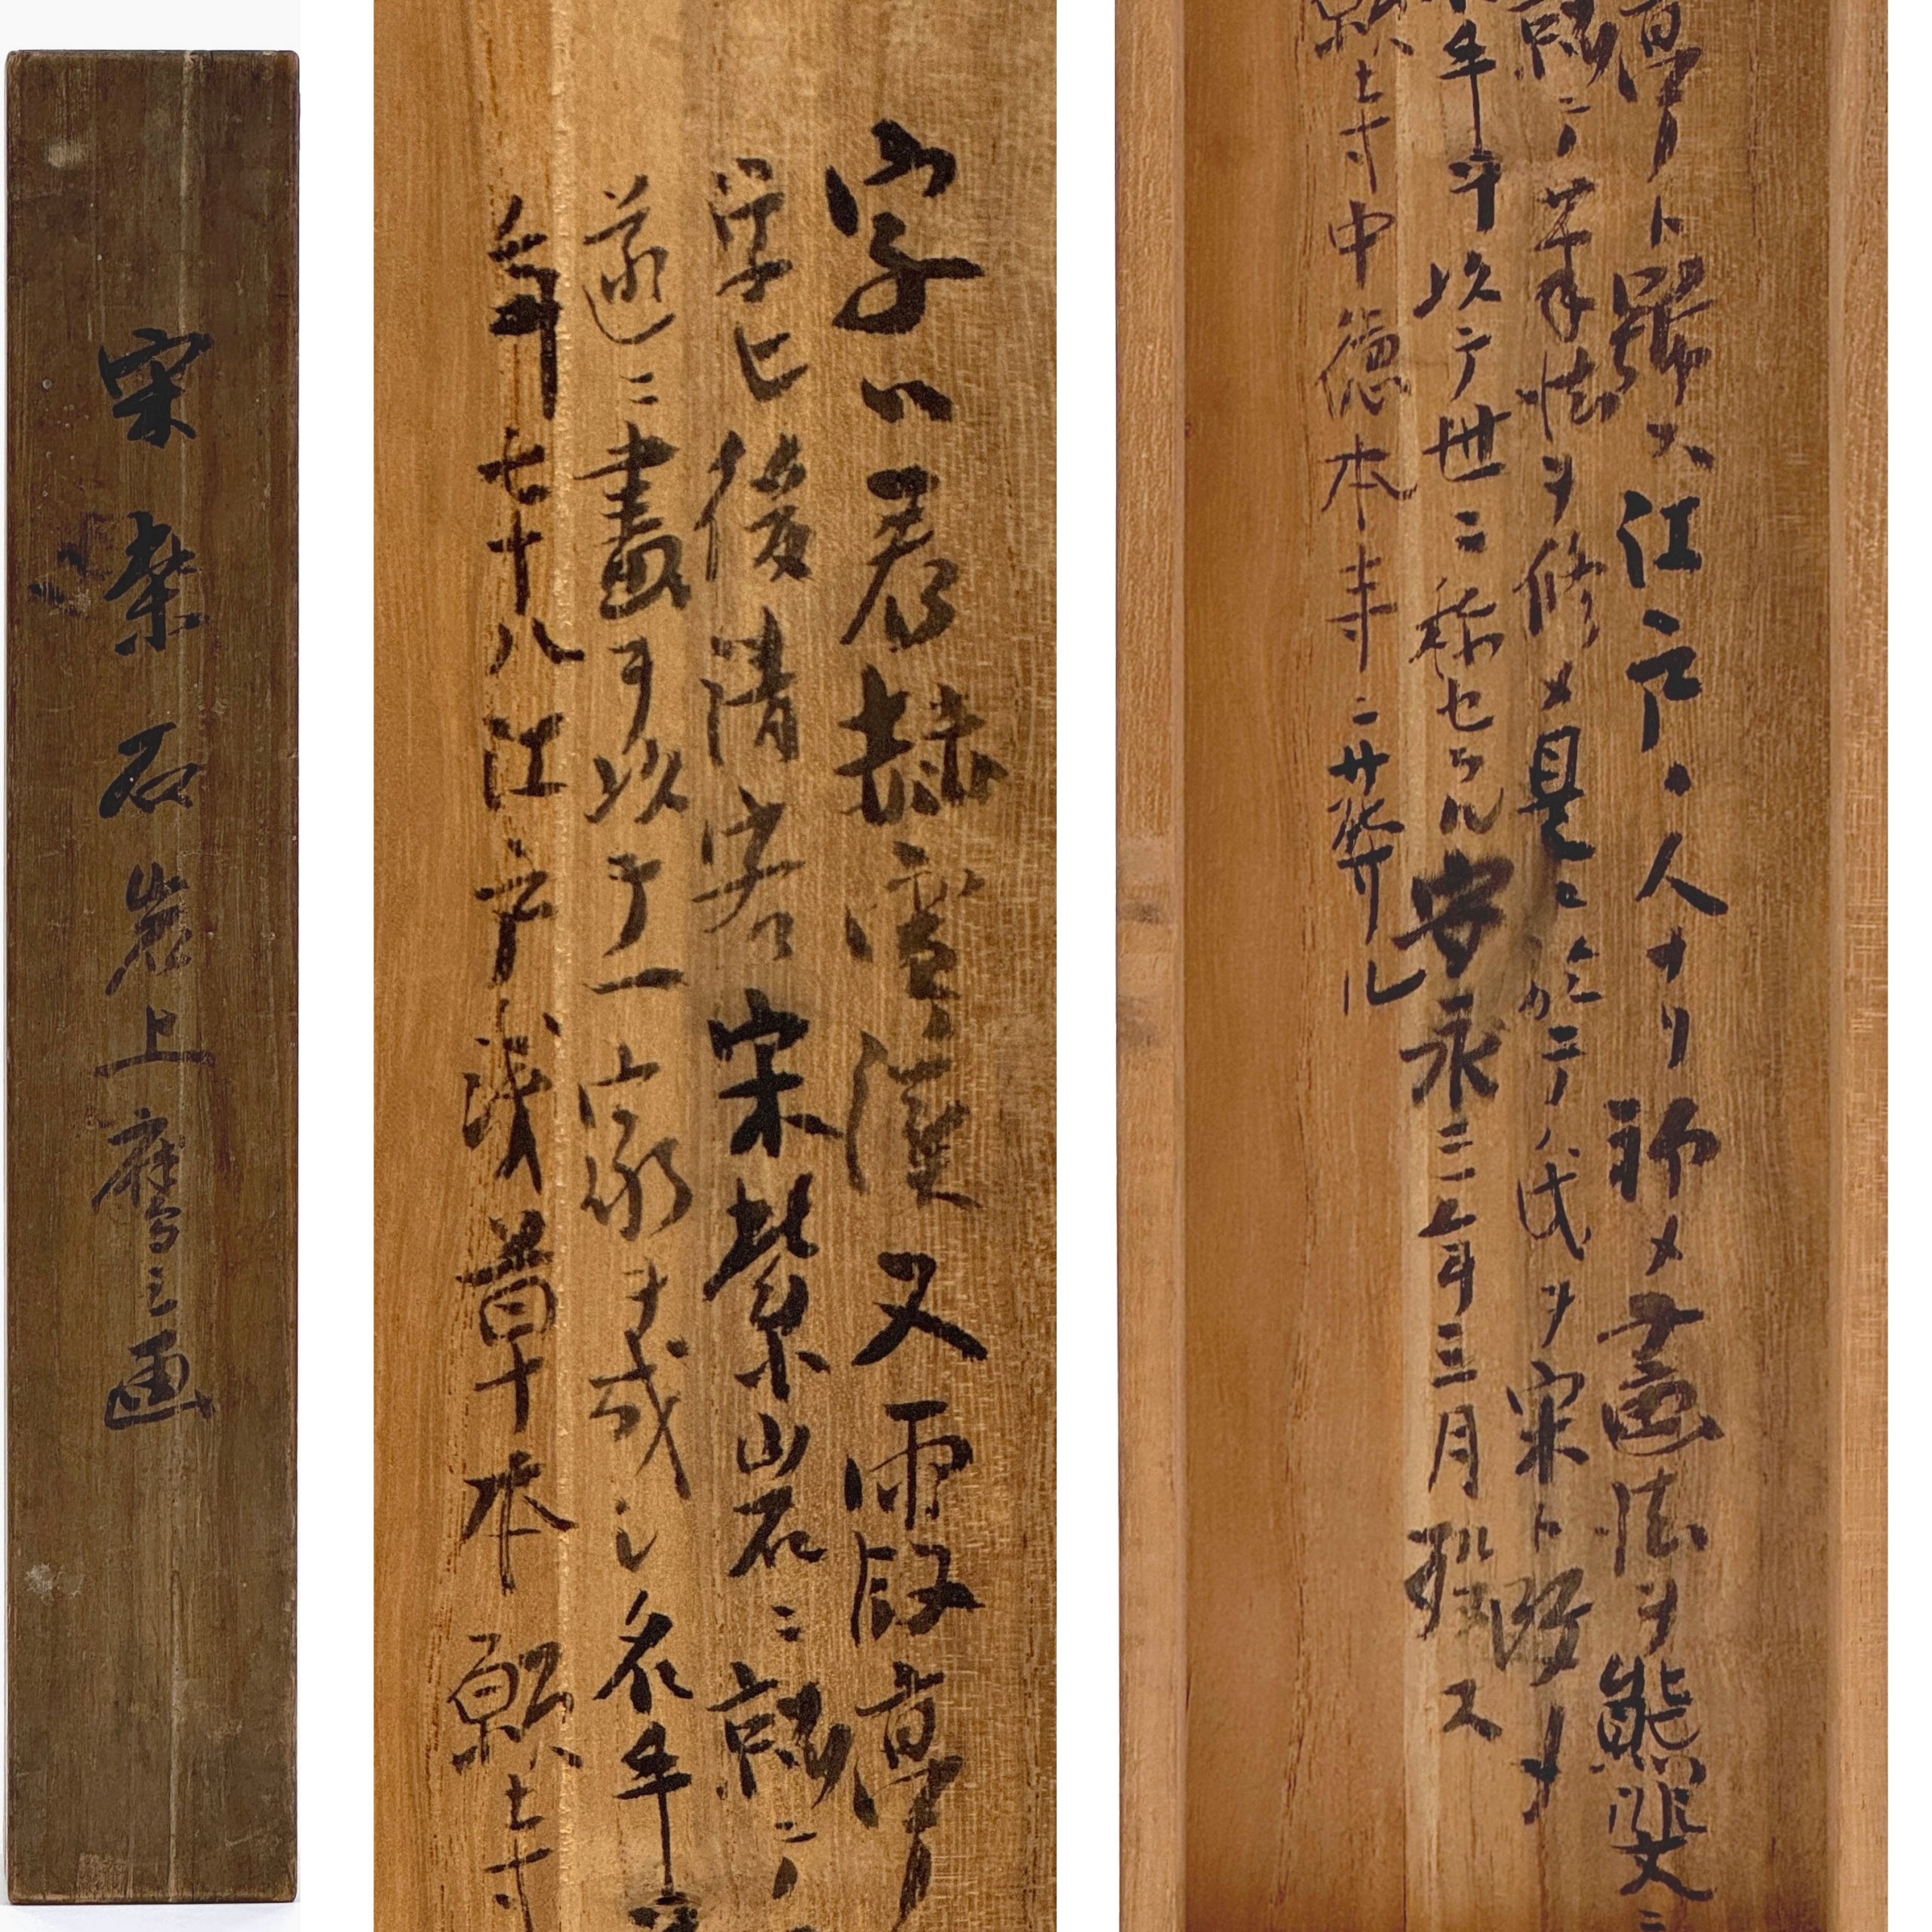 宋紫石岩上鷹之画
字ハ君赫雪渓又霞亭
学ヒ後清客宋紫岩ニ就テ
遂ニ畫ヲ以テ一家ヲ成シ名
年七十八江戸浅草本願寺
亭ト號ス江戸ノ人ナリ初メテ画法ヲ熊斐文ニ
就テ筆法ヲ修メ是ニ於テ氏ヲ宋ト改メ
以テ世ニ称セラル安永三年三月歿ス
願寺中徳本寺ニ葬ル